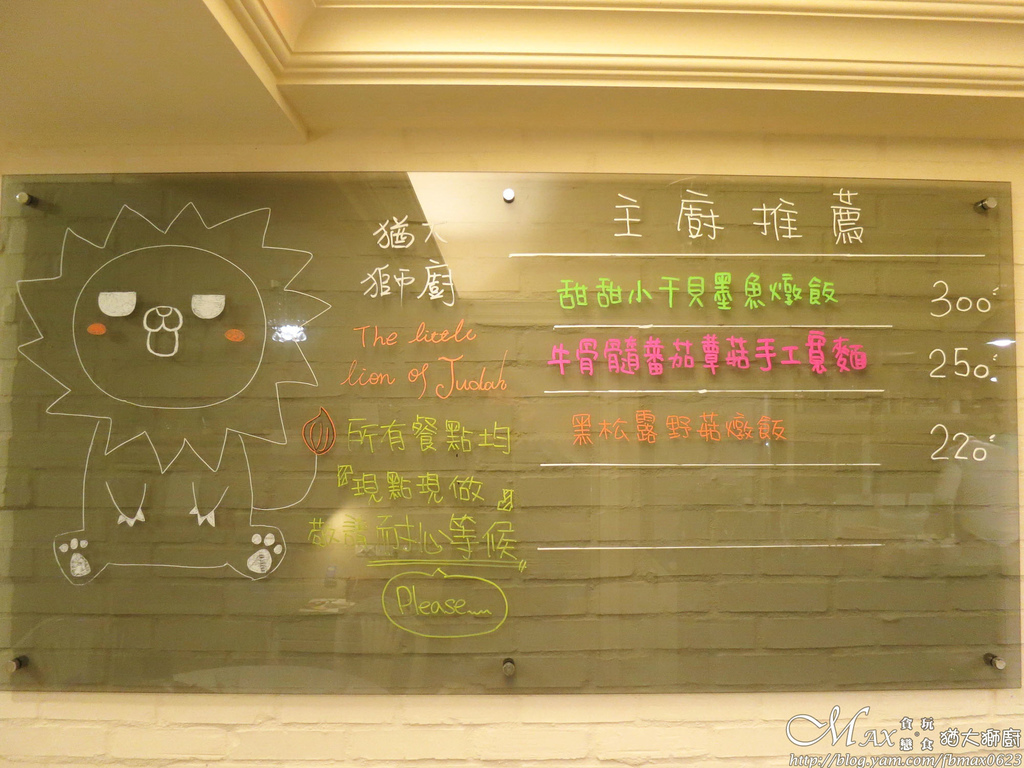 猶大
獅廚
The little
lion of Judah
所有餐點均
『現點現做』
敬請耐心等候
Please
主廚推薦
甜甜小干貝墨魚燉飯 300
牛骨髓蕃茄蕈菇手工寬麵 250
黑松露野菇燉飯 220
MAX 食玩戀食 猶大獅廚
http://blog.yam.com/fbmax0623